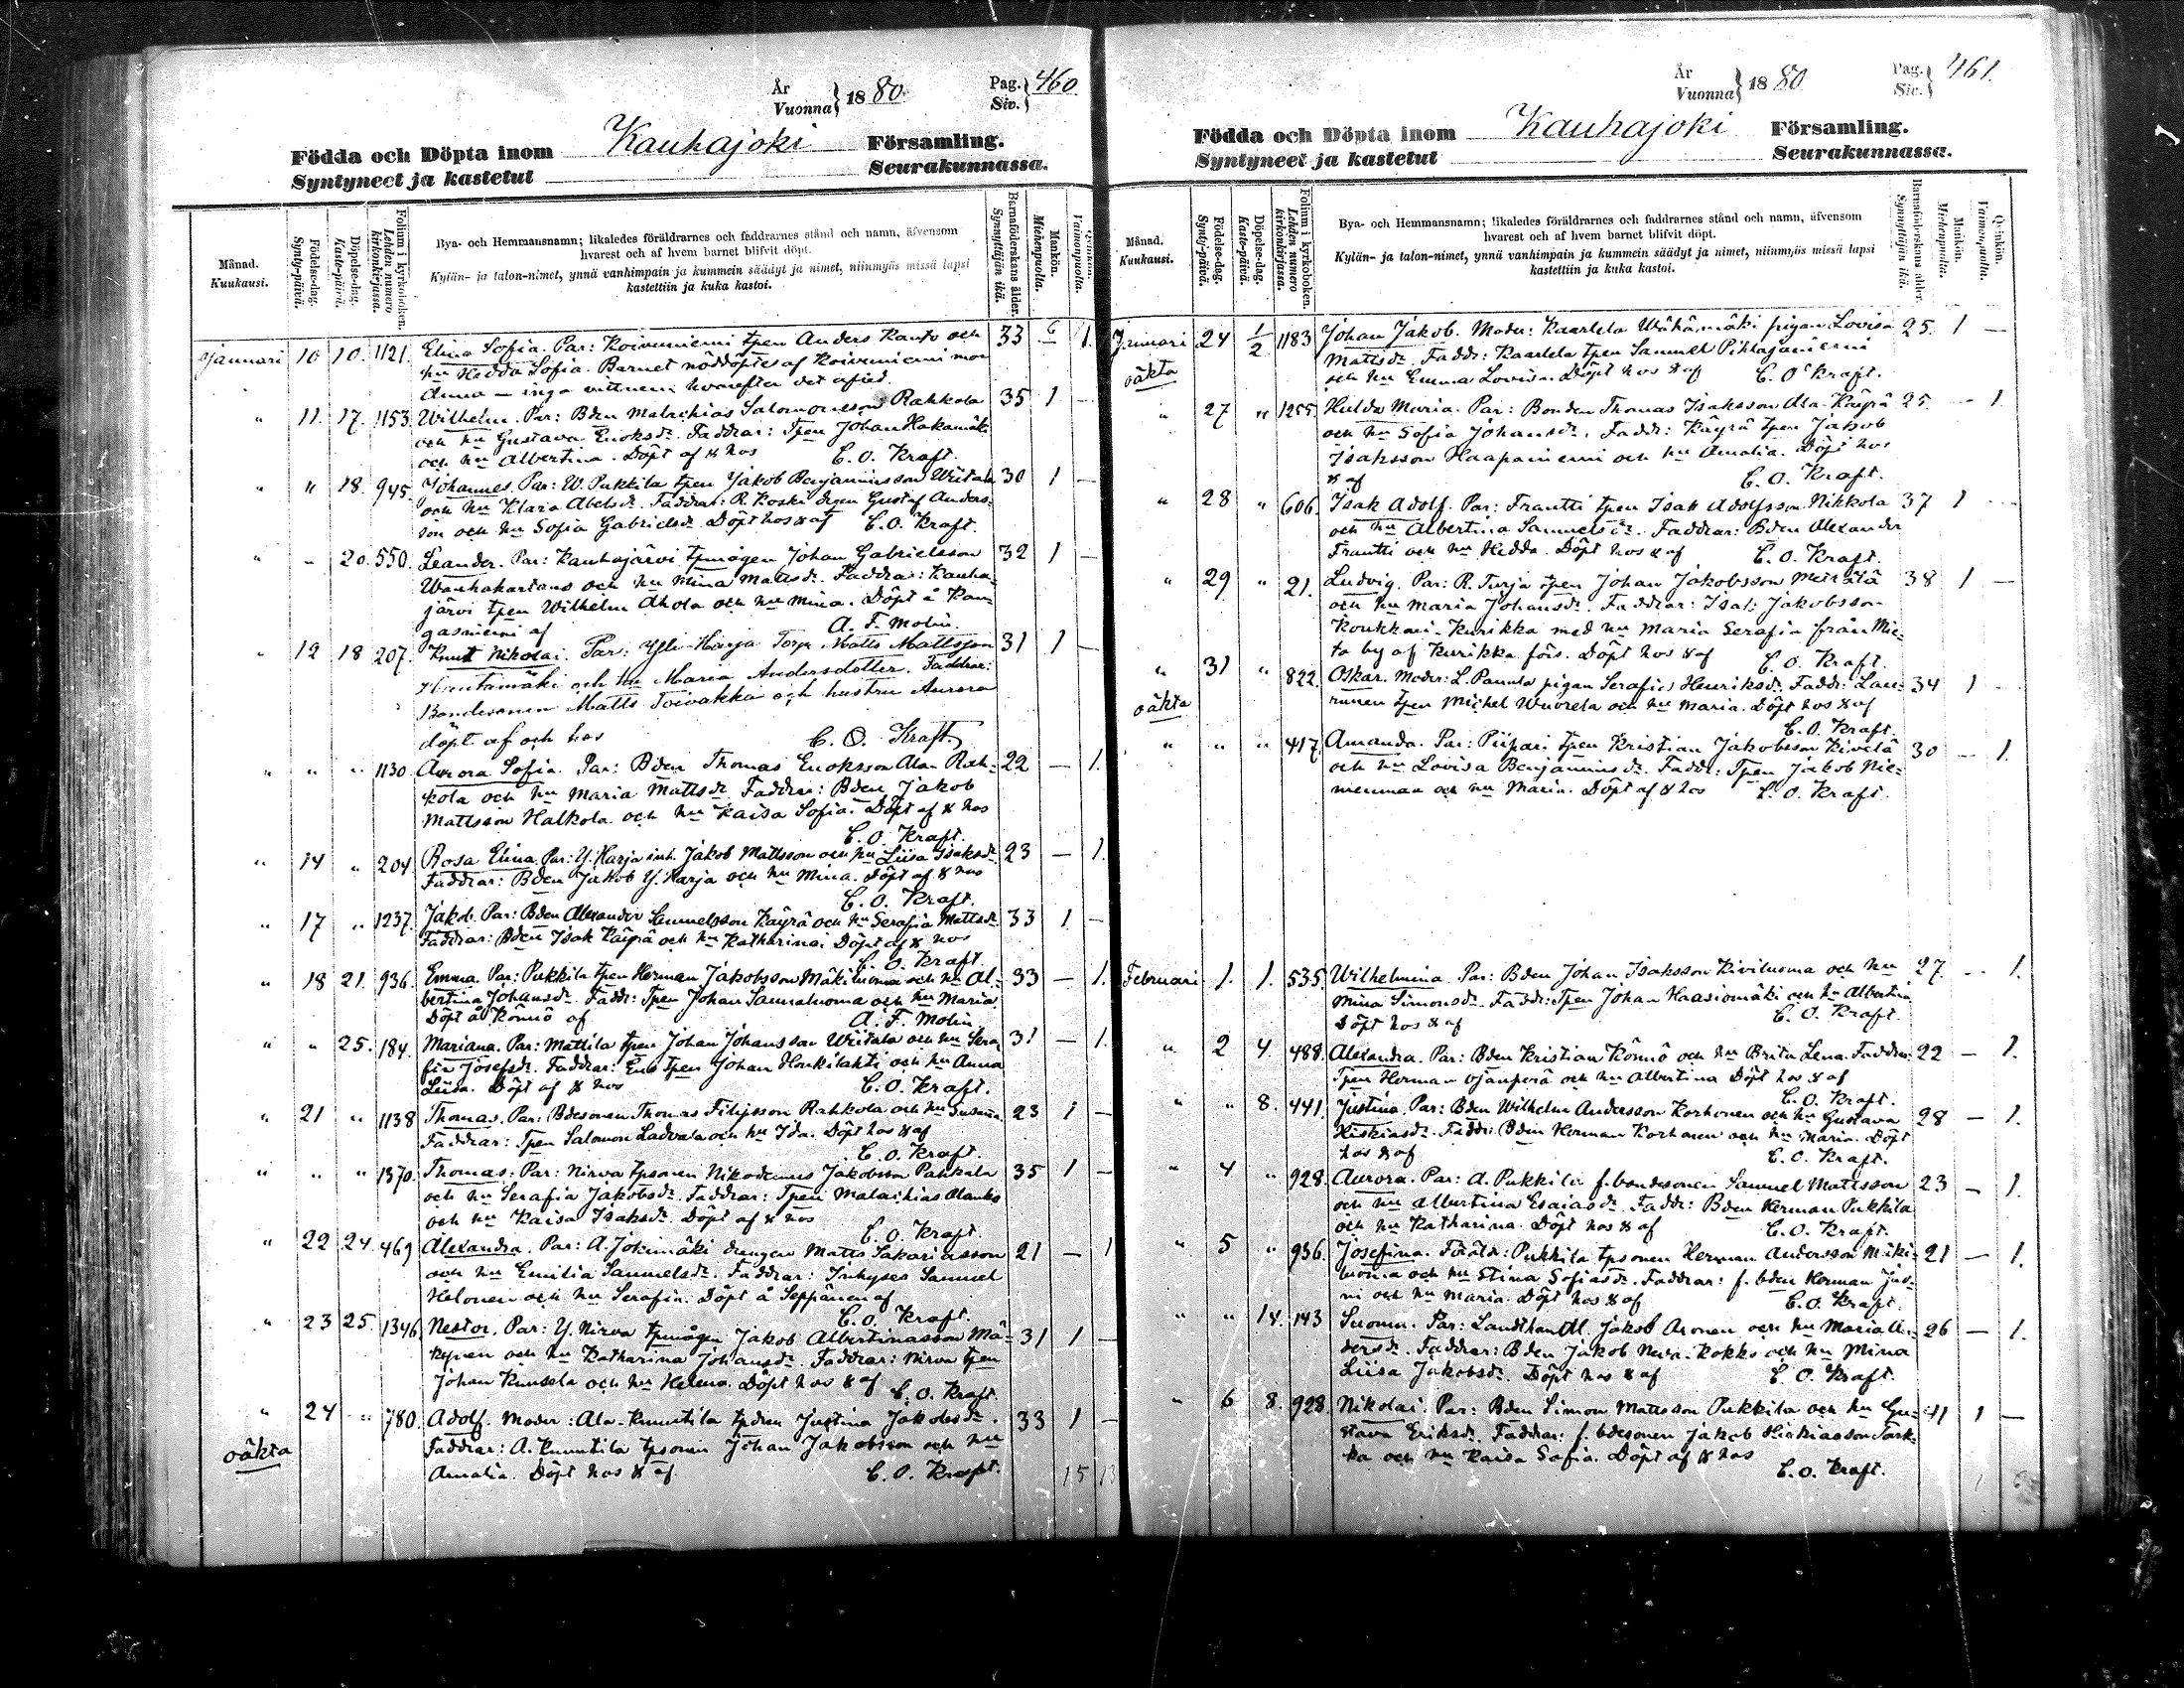 År
Vuonna
1880.
Pag.
Siv.
460
Födda och Döpta inom Kauhajoki Församling.
Syntyneet ja kastetut Seurakunnassa.
Månad.
Kuukausi.
Födelse-dag.
Synty-päivä.
Döpelse-dag.
Kaste-päivä.
Folium i kyrkoboken.
Lehden numero kirkonkirjassa.
Bya- och Hemmansnamn; likaledes föräldrarnes och faddrarnes stånd och namn, äfvensom
hvarest och af hvem barnet blifvit döpt.
Kylän- ja talon-nimet, ynnä vanhimpain ja kummein säädyt ja nimet, niinmyös missä lapsi
kastettiin ja kuka kastoi.
Barnaföderskans ålder.
Synnyttäjän ikä.
Mankön.
Miehenpuolia.
Qvinkön.
Vaimonpuolia.
Januari 10 10. 1121. Elina Sofia. Par: Koivuniemi tpen Anders Kanto och 33 1.
hu Hedda Sofia. Barnet nöddöptes af Koivuniemi mor
Anna — inga vittnen hvarefter det afled.
" 11. 17. 1153. Wilhelm. Par: Bden Malachias Salomonsson Rahkola 35 1 —
och hu Gustava Enoksdr. Faddrar: Tpen Johan Hakamäki
och hu Albertina. Döpt af & hos C. O. Kraft.
" " 18. 945. Johannes. Par: W. Pukkila tpen Jakob Benjaminsson Wiitala 30 1 —
och hu Klara Abelsdr. Faddrar: R. Koski drgen Gustaf Anders-
son och hu Sofia Gabrielsdr. Döpt hos & af C. O. Kraft.
" " 20. 550. Leander. Par: Kauhajärvi tpmågen Johan Gabrielsson 32 1 —
Wanhakartano och hu Mina Mattsdr. Faddrar: Kauha-
järvi tpen Wilhelm Ahola och hu Mina. Döpt å Kan-
gasniemi af A. F. Molin.
" 12 18 207. Knut Nikolai. Par: Yli-Harja Torp. Matts Mattsson 31 1 —
Hautamäki och hu Maria Andersdotter. Faddrar:
Bondesonen Matts Toivakka och hustru Aurora
döpt af och hos C. O. Kraft.
" " " 1130. Aurora Sofia. Par: Bden Thomas Enoksson Ala-Rah- 22 — 1.
kola och hu Maria Mattsdr. Faddrar: Bden Jakob
Mattsson Halkola och hu Kaisa Sofia. Döpt af & hos
C. O. Kraft.
" 14 " 204 Rosa Elina. Par: Y. Harja inh. Jakob Mattsson och hu Liisa Isaksdr. 23 — 1.
Faddrar: Bden Jakob Y. Harja och hu Mina. Döpt af & hos
C. O. Kraft.
" 17 " 1237. Jakob. Par: Bden Alexander Samuelsson Käyrä och hu Serafia Mattsdr. 33 1 —
Faddrar: Bden Isak Käyrä och hu Katharina. Döpt af & hos
C. O. Kraft.
" 18 21. 936. Emma. Par: Pukkila tpen Herman Jakobsson Mäkiluoma och hu Al- 33 — 1.
bertina Johansdr. Faddr: Tpen Johan Sauraluoma och hu Maria
Döpt å Könnö af A. F. Molin.
" " 25. 184. Mariana. Par: Mattila tpen Johan Johansson Wiitala och hu Sera- 31 — 1.
fia Josefsdr. Faddrar: tpen Johan Honkilahti och hu Anna
Liisa. Döpt af & hos C. O. Kraft.
" 21 " 1138 Thomas. Par: Bdesonen Thomas Filipsson Rahkola och hu Susana. 23 1 —
Faddrar: Tpen Salomon Ladvala och hu Ida. Döpt hos & af
C. O. Kraft.
" " " 1370. Thomas. Par: Nirva tpsonen Nikodemus Jakobsson Pahkala 35 1 —
och hu Serafia Jakobsdr. Faddrar: Tpen Malachias Alanko
och hu Kaisa Isaksdr. Döpt af & hos C. O. Kraft.
" 22 24. 469 Alexandra. Par: A. Jokimäki drengen Matts Sakariasson 21 — 1
och hu Emilia Samuelsdr. Faddrar: Inhyses Samuel
Helonen och hu Serafia. Döpt å Seppänen af
C. O. Kraft.
" 23 25. 1346 Nestor. Par: Y. Nirva tpmågen Jakob Albertinasson Mä- 31 1 —
kynen och hu Katharina Johansdr. Faddrar: Nirva tpen
Johan Kuusela och hu Helena. Döpt hos & af C. O. Kraft.
" 24 " 780. Adolf. Moder: Ala-Knuutila tpdren Justina Jakobsdr. 33 1 —
oäkta Faddrar: A. Knuutila tpsonen Johan Jakobsson och hu
Amalia. Döpt hos & af C. O. Kraft. 15 13
År
Vuonna
1880
Pag.
Siv.
461.
Födda och Döpta inom Kauhajoki Församling.
Syntyneet ja kastetut Seurakunnassa.
Månad.
Kuukausi.
Födelse-dag.
Synty-päivä.
Döpelse-dag.
Kaste-päivä.
Folium i kyrkoboken.
Lehden numero kirkonkirjassa.
Bya- och Hemmansnamn; likaledes föräldrarnes och faddrarnes stånd och namn, äfvensom
hvarest och af hvem barnet blifvit döpt.
Kylän- ja talon-nimet, ynnä vanhimpain ja kummein säädyt ja nimet, niinmyös missä lapsi
kastettiin ja kuka kastoi.
Barnaföderskans ålder.
Synnyttäjän ikä.
Mankön.
Miehenpuolia.
Qvinkön.
Vaimonpuolia.
Januari 24 1/2 1183 Johan Jakob. Moder: Kaarlela Wähämäki pigan Lovisa 25. 1 —
oäkta Mattsdr. Faddr: Kaarlela tpen Samuel Pihlajaniemi
och hu Emma Lovisa. Döpt hos & af C. O. Kraft.
" 27 " 1255. Hulda Maria. Par: Bonden Thomas Isaksson Ala-Käyrä 25. — 1
och hu Sofia Johansdr. Faddr: Käyrä tpen Jakob
Isaksson Haapaniemi och hu Amalia. Döpt hos
& af C. O. Kraft.
" 28 " 606. Isak Adolf. Par: Frantti tpen Isak Adolfsson Nikkola 37 1 —
och hu Albertina Samuelsdr. Faddrar: Bden Alexander
Frantti och hu Hedda. Döpt hos & af C. O. Kraft.
" 29 " 21. Ludvig. Par: R. Turja tpen Johan Jakobsson Metsälä 38 1 —
och hu Maria Johansdr. Faddrar: Isak Jakobsson
Koukkari-Kurikka med hu Maria Serafia från Mie-
to by af Kurikka förs. Döpt hos & af C. O. Kraft.
" 31 " 822. Oskar. Moder: L. Panula pigan Serafia Henriksdr. Faddr: Lau- 34 1 —
oäkta runen tpen Michel Wuorela och hu Maria. Döpt hos & af
C. O. Kraft.
" " " 417. Amanda. Par: Piipari tpen Kristian Jakobsson Kivelä 30 — 1.
och hu Lovisa Benjaminsdr. Faddr: Tpen Jakob Nie-
nienmaa och hu Maria. Döpt af & hos C. O. Kraft.
Februari 1. 1. 535. Wilhelmina. Par: Bden Johan Isaksson Kiviluoma och hu 27. — 1.
Mina Simonsdr. Faddr: Tpen Johan Haasiomäki och hu Albertina
Döpt hos & af C. O. Kraft.
" 2 4. 488. Alexandra. Par: Bden Kristian Könnö och hu Brita Lena. Faddrar: 22 — 1.
Tpen Herman Ojanperä och hu Albertina Döpt hos & af
C. O. Kraft.
" " 8. 441. Justina. Par: Bden Wilhelm Andersson Korhonen och hu Gustava 28 — 1.
Hiskiasdr. Faddr: Bden Herman Korhonen och hu Maria. Döpt
hos & af C. O. Kraft.
" 4 " 928. Aurora. Par: A. Pukkila f. bondesonen Samuel Mattsson 23 — 1.
och hu Albertina Esaiasdr. Faddr: Bden Herman Pukkila
och hu Katharina. Döpt hos & af C. O. Kraft.
" 5 " 936. Josefina. Föräldr: Pukkila tpsonen Herman Andersson Mäki- 21 — 1.
luoma och hu Stina Sofiasdr. Faddrar: f. bden Herman Jus-
si och hu Maria. Döpt hos & af C. O. Kraft.
" " 14. 143 Suoma. Par: Landthandl. Jakob Aronen och hu Maria An- 26 — 1.
dersdr. Faddrar: Bden Jakob Neva-Kokko och hu Mina
Liisa Jakobsdr. Döpt hos & af C. O. Kraft.
" 6 8. 928. Nikolai. Par: Bden Simon Mattsson Pukkila och hu Gu- 41 1 —
stava Eriksdr. Faddrar: f. bdesonen Jakob Hiskiasson Tark-
ka och hu Kaisa Sofia. Döpt af & hos
C. O. Kraft.